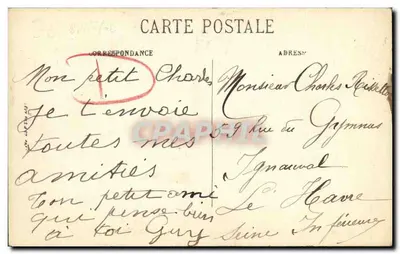 CARTE POSTALE
CORRESPONDANCE
ADRESSE
Mon petit Charles
je t'envoie
toutes mes
amitiés
Ton petit ami
qui pense bien
à toi Guy
D
Monsieur Charles
59 Rue du Gymnase
Le Havre
Seine Inférieure
CPARAMA